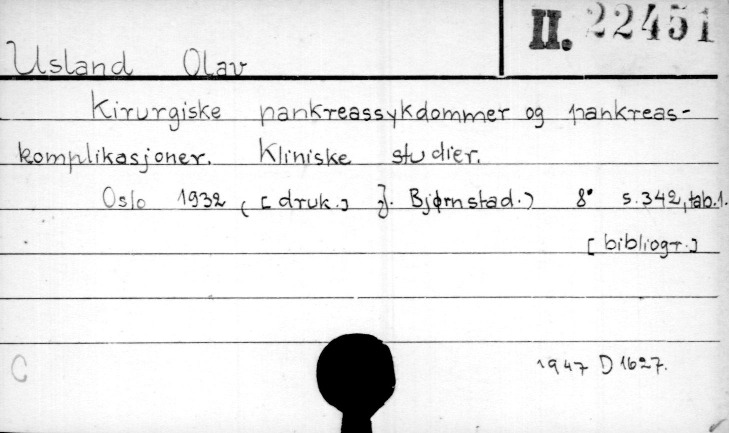 II. 22451
Usland Olav
Kirurgiske pankreassykdommer og pankreas-
komplikasjoner. Kliniske studier.
Oslo 1932 ([druk.] J. Bjørnstad.) 8° s. 342, tab. 1.
[bibliogr.]
C
1947 D 1627.